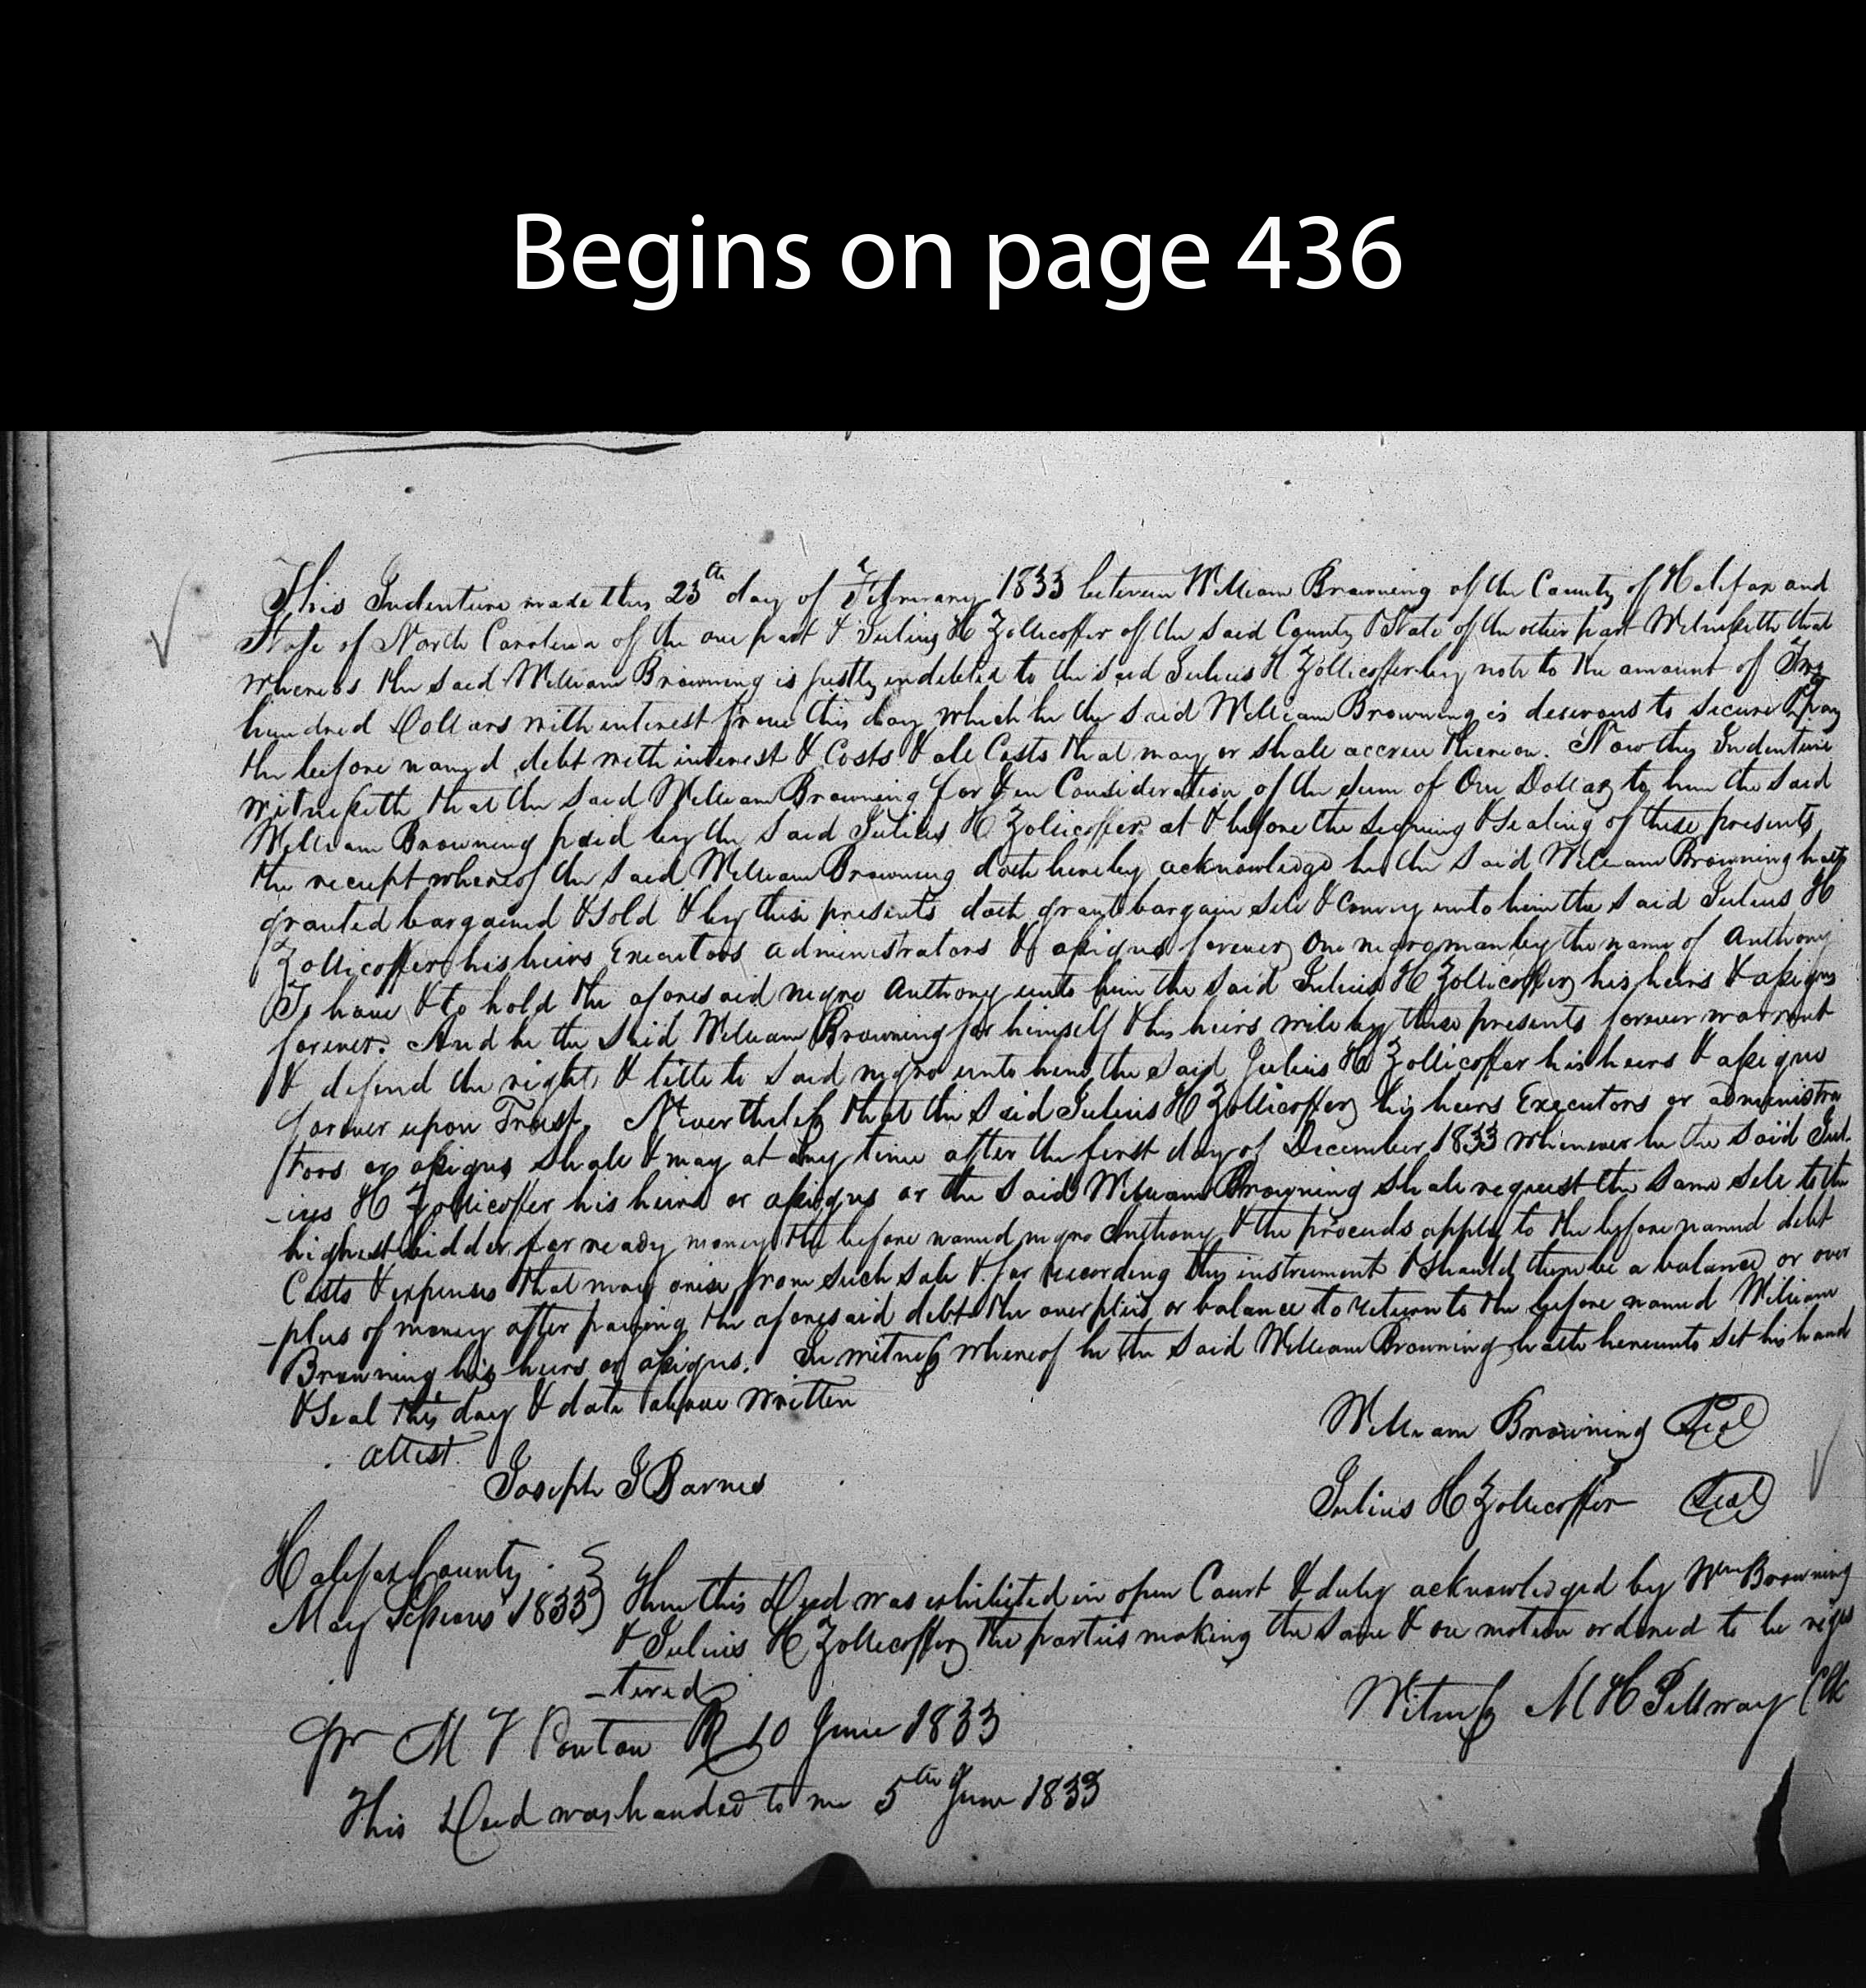 Begins on page 436
This Indenture made this 25th day of February 1833 between William Browning of the County of Halifax and
State of North Carolina of the one part & Julius H Zollicoffer of the said County & State of the other part Witnesseth that
whereas the said William Browning is justly indebted to the said Julius H Zollicoffer by note to the amount of
hundred Dollars with interest from this day which he the said William Browning is desirous to secure & pay
the before named debt with interest & Costs & all Costs that may or shall accrue thereon. Now this Indenture
witnesseth that the said William Browning for & in Consideration of the sum of One Dollar to him the said
William Browning paid by the said Julius H Zollicoffer at & before the signing & sealing of these presents
the receipt whereof the said William Browning doth hereby acknowledge he the said William Browning hath
granted bargained & sold & by these presents doth grant bargain sell & convey unto him the said Julius H
Zollicoffer his heirs Executors administrators & assigns forever One negro man by the name of Anthony
To have & to hold the aforesaid negro Anthony unto him the said Julius H Zollicoffer his heirs & assigns
forever. And he the said William Browning for himself & his heirs will by these presents forever warrant
& defend the right & title to said negro unto him the said Julius H Zollicoffer his heirs & assigns
forever upon Trust. Nevertheless that the said Julius H Zollicoffer his heirs Executors or administra
tors or assigns shall & may at any time after the first day of December 1833 whenever he the said Jul-
-ius H Zollicoffer his heirs or assigns or the said William Browning shall request the same sell to the
highest bidder for ready money the before named negro Anthony & the proceeds apply to the before named debt
Costs & expenses that may arise from such sale & for recording this instrument & should there be a balance or over
-plus of money after paying the aforesaid debt the overplus or balance to return to the before named William
Browning his heirs or assigns. In witness whereof he the said William Browning hath hereunto set his hand
& Seal this day & date above written
attest. William Browning Seal
Joseph J Barnes
Julius H Zollicoffer Seal
Halifax County
May Sessions 1833 Then this Deed was exhibited in open Court & duly acknowledged by Wm Browning
& Julius H Zollicoffer the parties making the same & on motion ordered to be regis
-tered
Witness M H Pettway Clk
pr M F Ponton PR 10 June 1833
This Deed was handed to me 5th June 1833